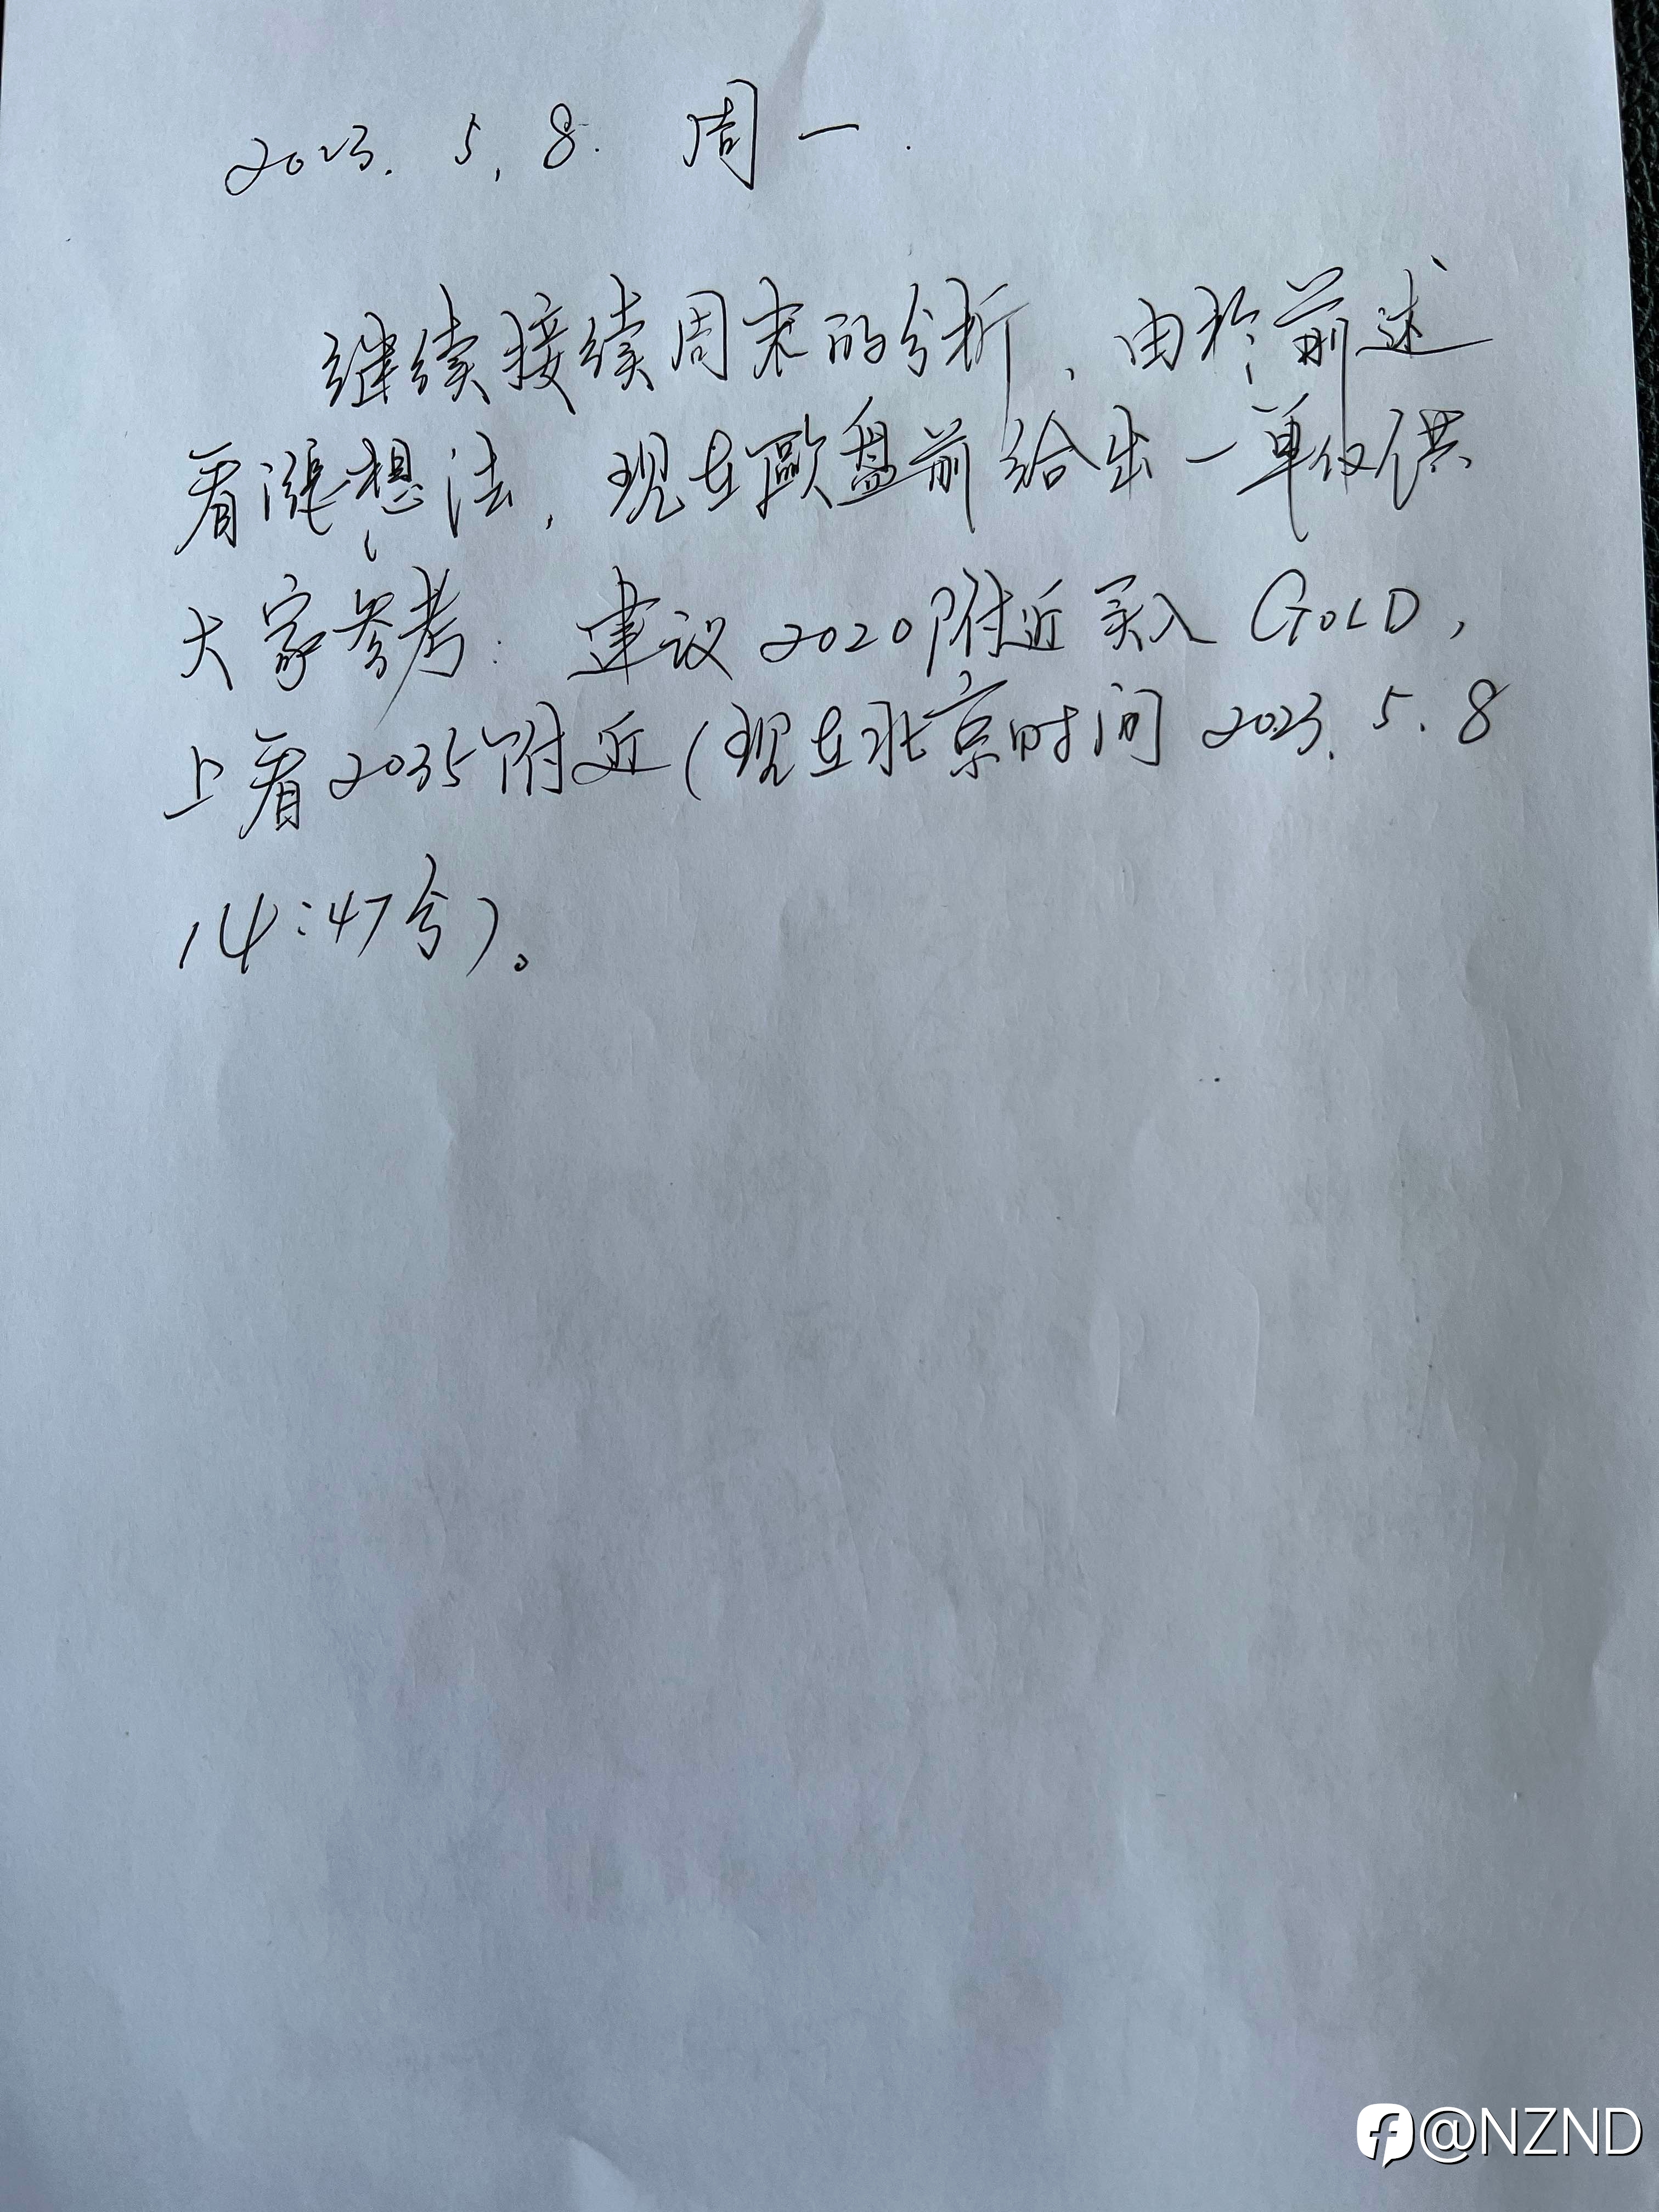 2023. 5. 8. 周一.
继续接续周末的分析，由於前述
看漲想法，现在歐盘前给出一单仅供
大家参考：建议2020附近买入GOLD，
上看2035附近（现在北京时间2023.5.8
14:47分）。
@NZND